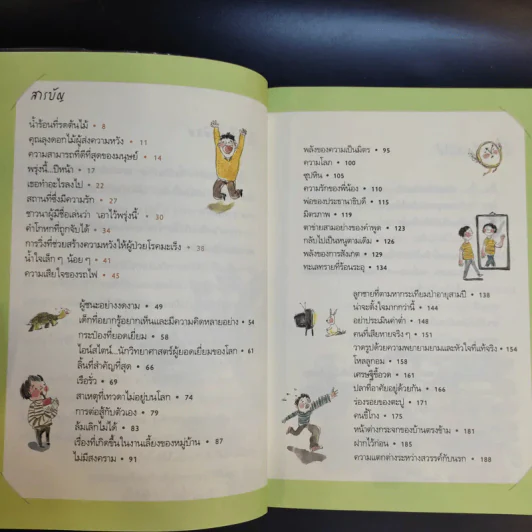 สารบัญ
น้ำร้อนที่รดต้นไม้ • 8
คุณลุงดอกไม้ผู้ส่งความหวัง • 11
ความสามารถที่ดีที่สุดของมนุษย์ • 14
พรุ่งนี้...ปีหน้า • 17
เธอทำอะไรลงไป • 22
สถานที่ซึ่งมีความรัก • 27
ชาวนาผู้มีชื่อเล่นว่า 'เอาไว้พรุ่งนี้' • 30
คำโกหกที่ถูกจับได้ • 34
การวิ่งที่ช่วยสร้างความหวังให้ผู้ป่วยโรคมะเร็ง • 38
น้ำใจเล็ก ๆ น้อย ๆ • 41
ความเสียใจของรถไฟ • 45
ผู้ชนะอย่างงดงาม • 49
เด็กที่อยากรู้อยากเห็นและมีความคิดหลายอย่าง • 54
กระป๋องที่ยอดเยี่ยม • 58
ไอน์สไตน์...นักวิทยาศาสตร์ผู้ยอดเยี่ยมของโลก • 61
ลิ้นที่สำคัญที่สุด • 66
เรือรั่ว • 69
สาเหตุที่เทวดาไม่อยู่บนโลก • 74
การต่อสู้กับตัวเอง • 79
ล้มเลิกไม่ได้ • 83
เรื่องที่เกิดขึ้นในงานเลี้ยงของหมู่บ้าน • 87
ไม่มีสงคราม • 91
พลังของความเป็นมิตร • 95
ความโลภ • 100
ซุปหิน • 105
ความรักของพี่น้อง • 110
พ่อของประธานาธิบดี • 115
มิตรภาพ • 119
ตาข่ายสามอย่างของคำพูด • 123
กลับไปเป็นหนูตามเดิม • 126
พลังของการสังเกต • 129
ทะเลทรายที่ร้อนระอุ • 134
ลูกชายที่ตามหากระเทียมป่าอายุสามปี • 138
น่าจะตั้งใจมากกว่านี้ • 144
อย่าประเมินค่าต่ำ • 148
คนที่เสียหายจริง ๆ • 151
วาดรูปด้วยความพยายามและหัวใจที่แท้จริง • 154
โหลลูกอม • 158
เศรษฐีขี้อวด • 161
ปลาที่อาศัยอยู่ด้วยกัน • 166
ร่องรอยของตะปู • 171
คนขี้โกง • 175
หน้าต่างกระจกของบ้านตรงข้าม • 181
ฝากไว้ก่อน • 185
ความแตกต่างระหว่างสวรรค์กับนรก • 188